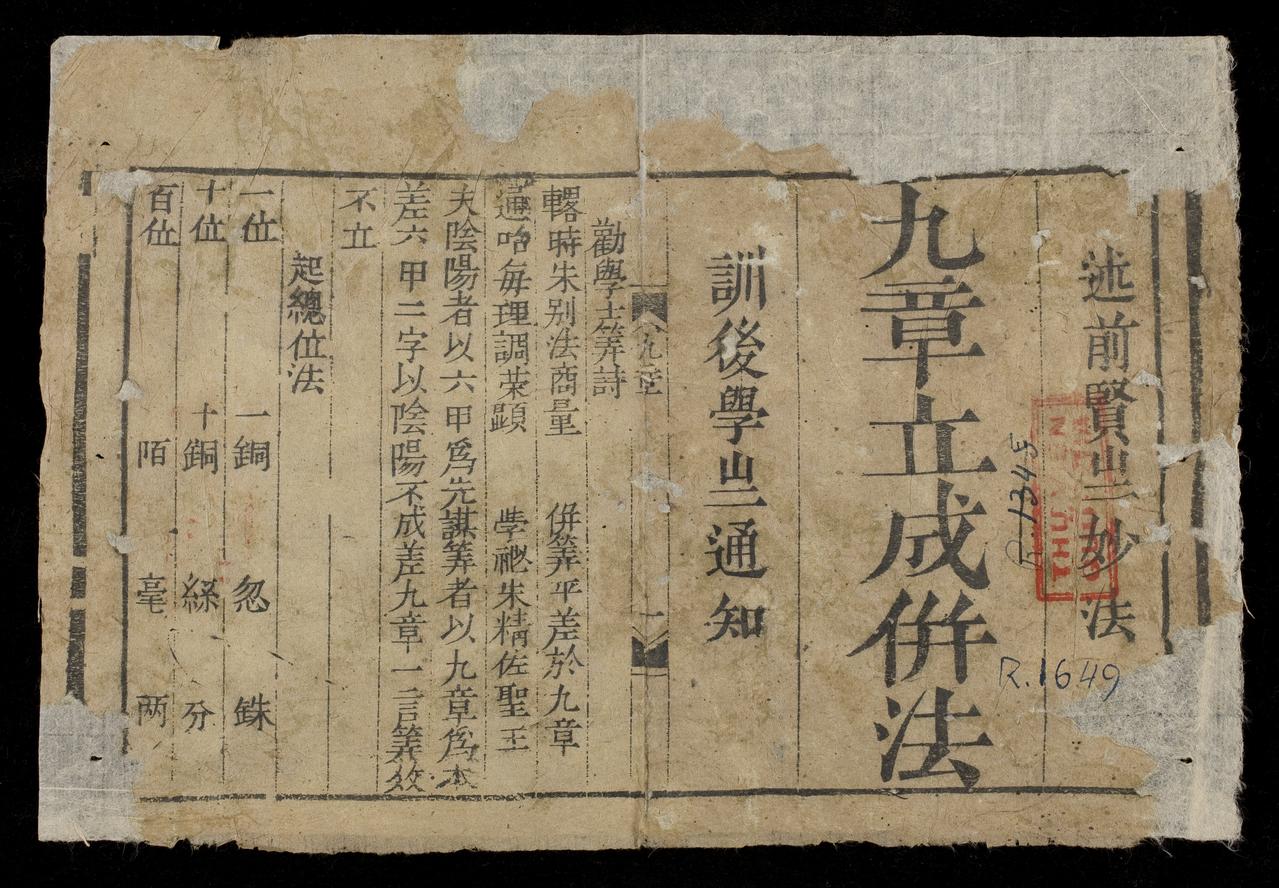 述前賢之妙法
九章立成併法
訓後學之通知
九章
一
勸學士筭詩
畧時朱别法商量 併筭平差於九章
通哈每理調荣顕 學祕朱精佐聖王
夫陰陽者以六甲爲先謀筭者以九章爲本
差六甲二字以陰陽不成差九章一言筭效
不立
起總位法
一位 一銅 忽 銖
十位 十銅 絲 分
百位 陌 毫 两
R.1649